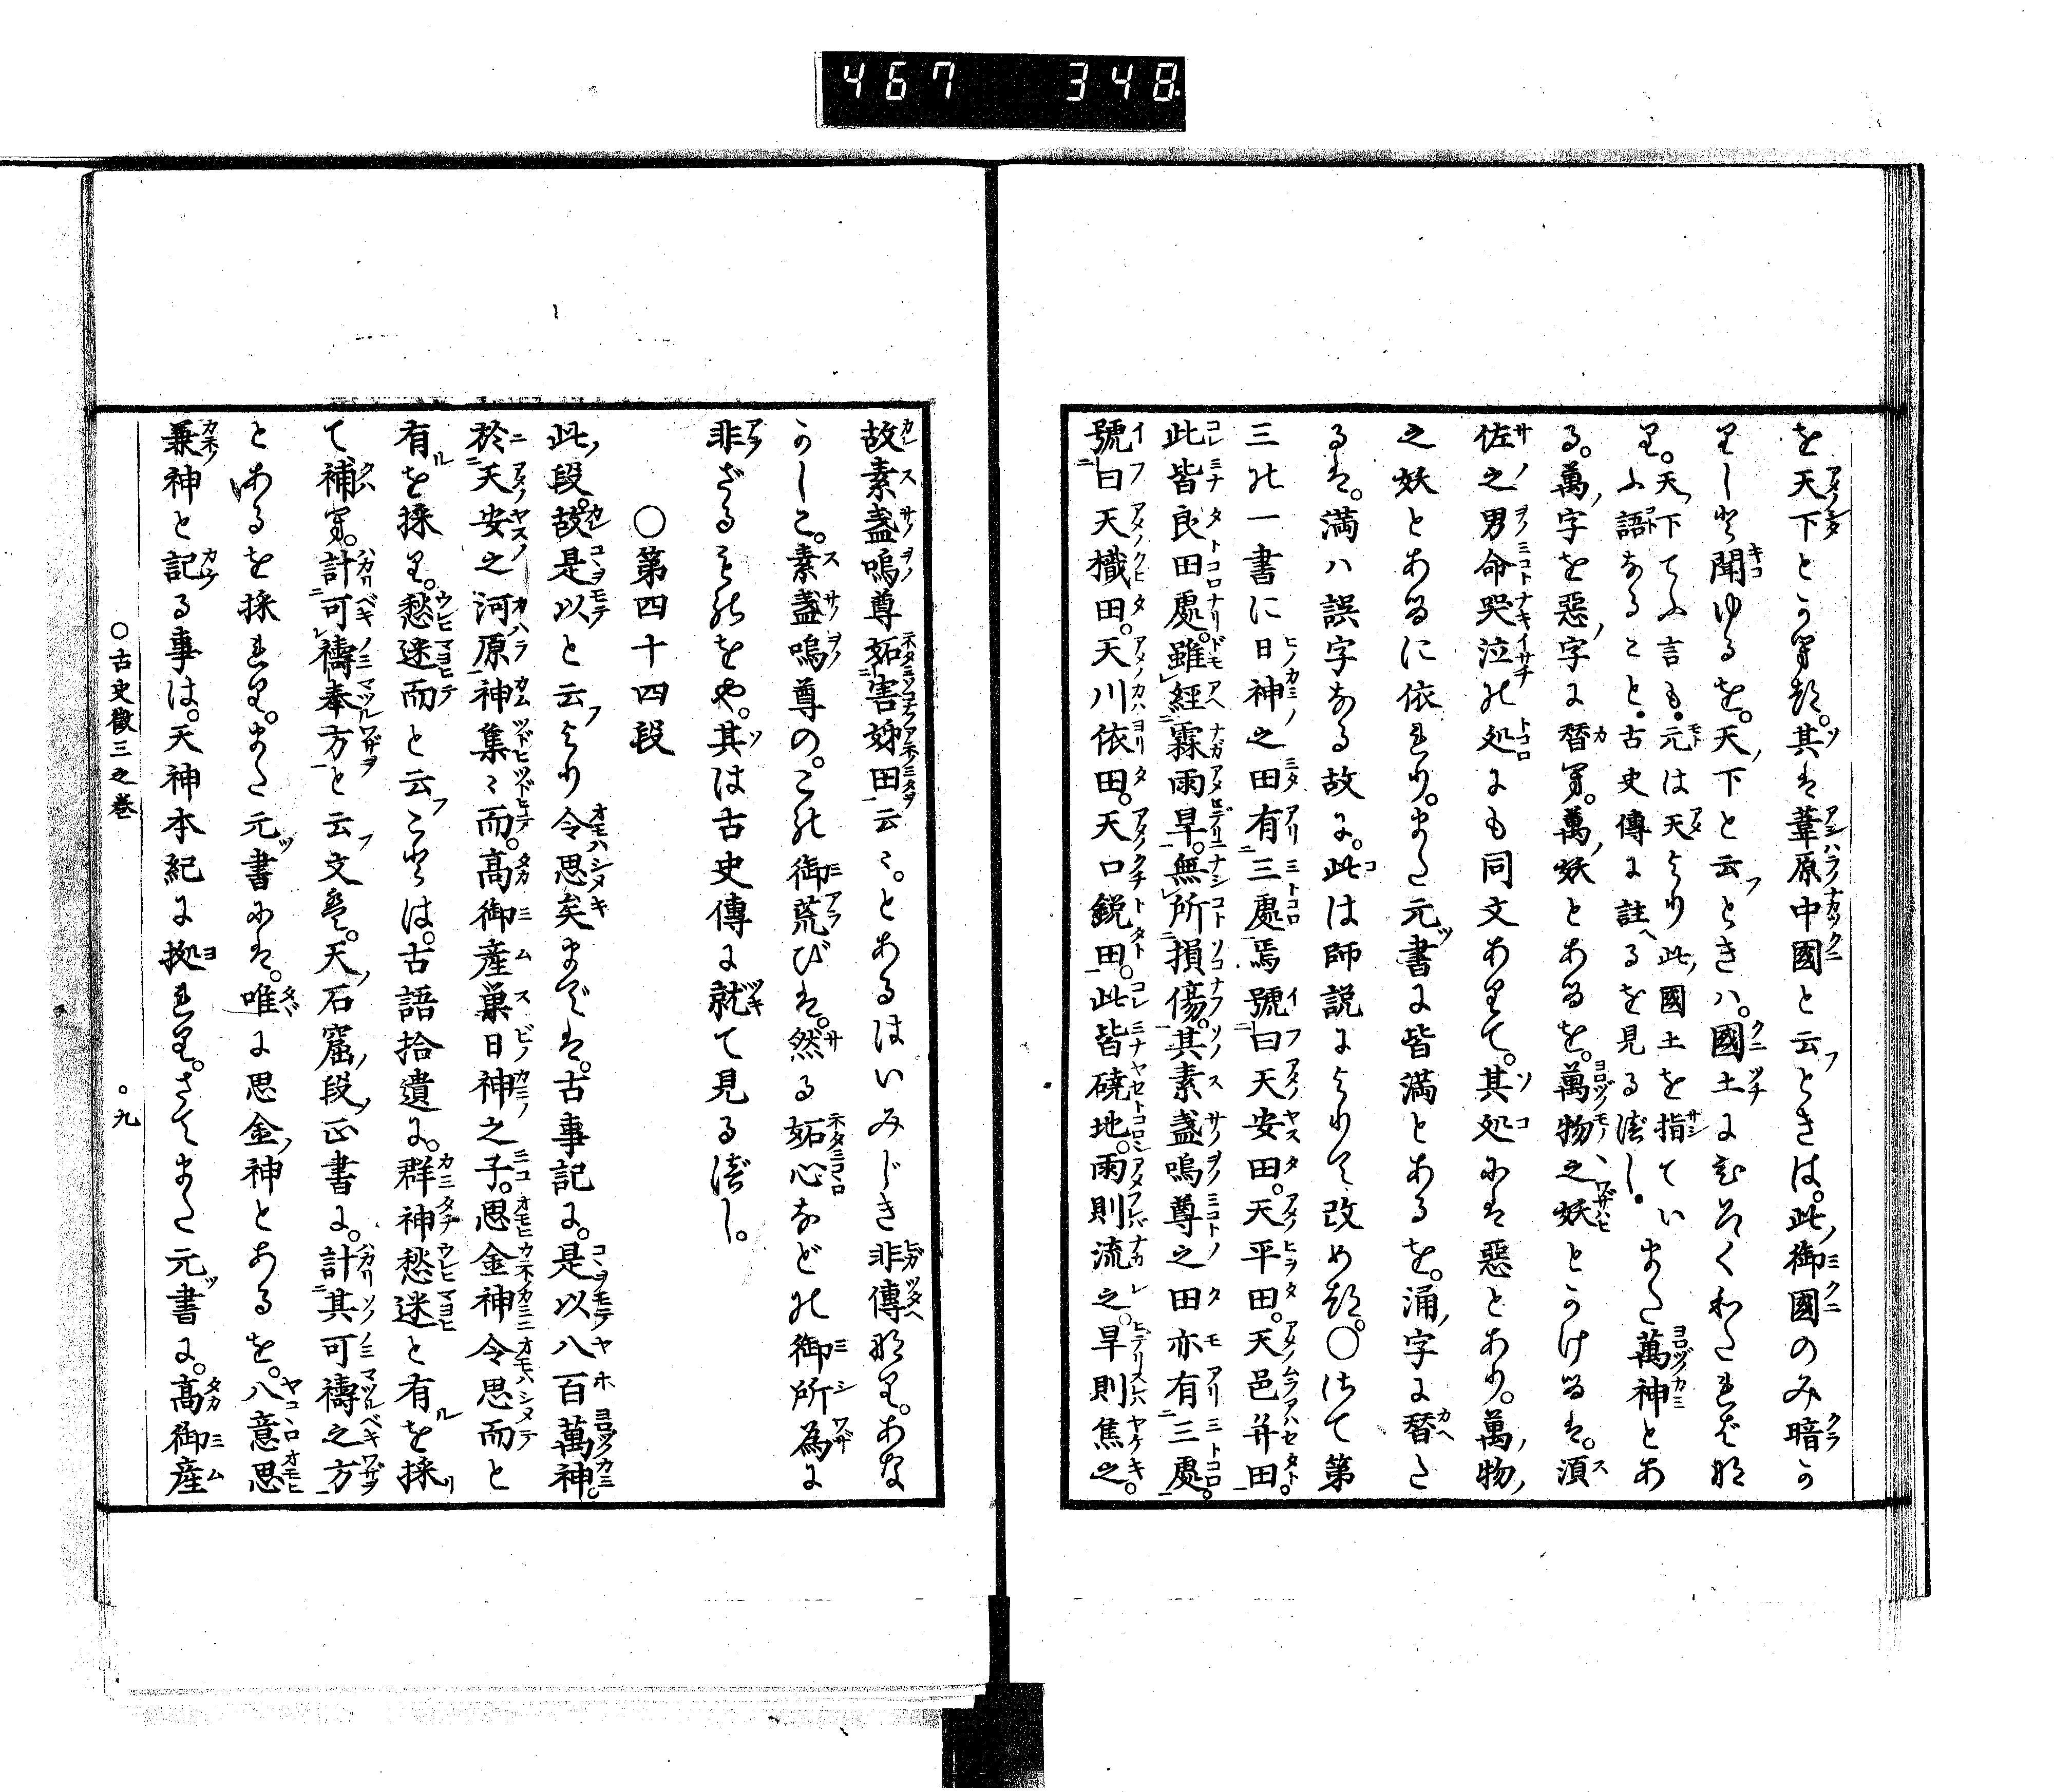 467 348
を天下とかへつ。其は葦原中國と云ときは。此御國のみ暗か
りしと聞ゆるを。天下と云ときハ。國土にむねくわたればな
り。天下てふ言も。元は天より此國土を指てい
ふ語なること。古史傳に註へるを見るべし。また萬神とあ
る。萬字を惡字に替つ。萬妖とあるを。萬物之妖とかけるは。須
佐之男命哭泣の処にも同文ありて。其処には惡とあり。萬物
之妖とあるに依れり。また元書に皆満とあるを。涌字に替た
るは。満ハ誤字なる故に。此は師説によりて改めつ。〇さて第
三の一書に日神之田有三處焉號曰天安田。天平田。天邑并田。
此皆良田處。雖經霖雨旱。無所損傷。其素盞嗚尊之田亦有三處。
號曰天樴田。天川依田。天口鋭田。此皆磽地。雨則流之。旱則焦之。
故素盞嗚尊妬害姉田云〻。とあるはいみじき非傳なり。あな
かしこ。素盞嗚尊の。この御荒びは。然る妬心などの御所為に
非ざるものをや。其は古史傳に就て見るべし。
〇第四十四段
此段。故是以と云より令思矣までは。古事記に。是以八百萬神。
於天安之河原神集〻而。高御産巣日神之子。思金神令思而と
有を採り。愁迷而と云ことは。古語拾遺に。群神愁迷と有を採
て補つ。計可禱奉方と云文は。天石窟段正書に。計其可禱之方
とあるを採れり。また元書には。唯に思金神とあるを。八意思
兼神と記る事は。天神本紀に拠れり。さてまた元書に。高御産
〇古史徴三之巻 〇九